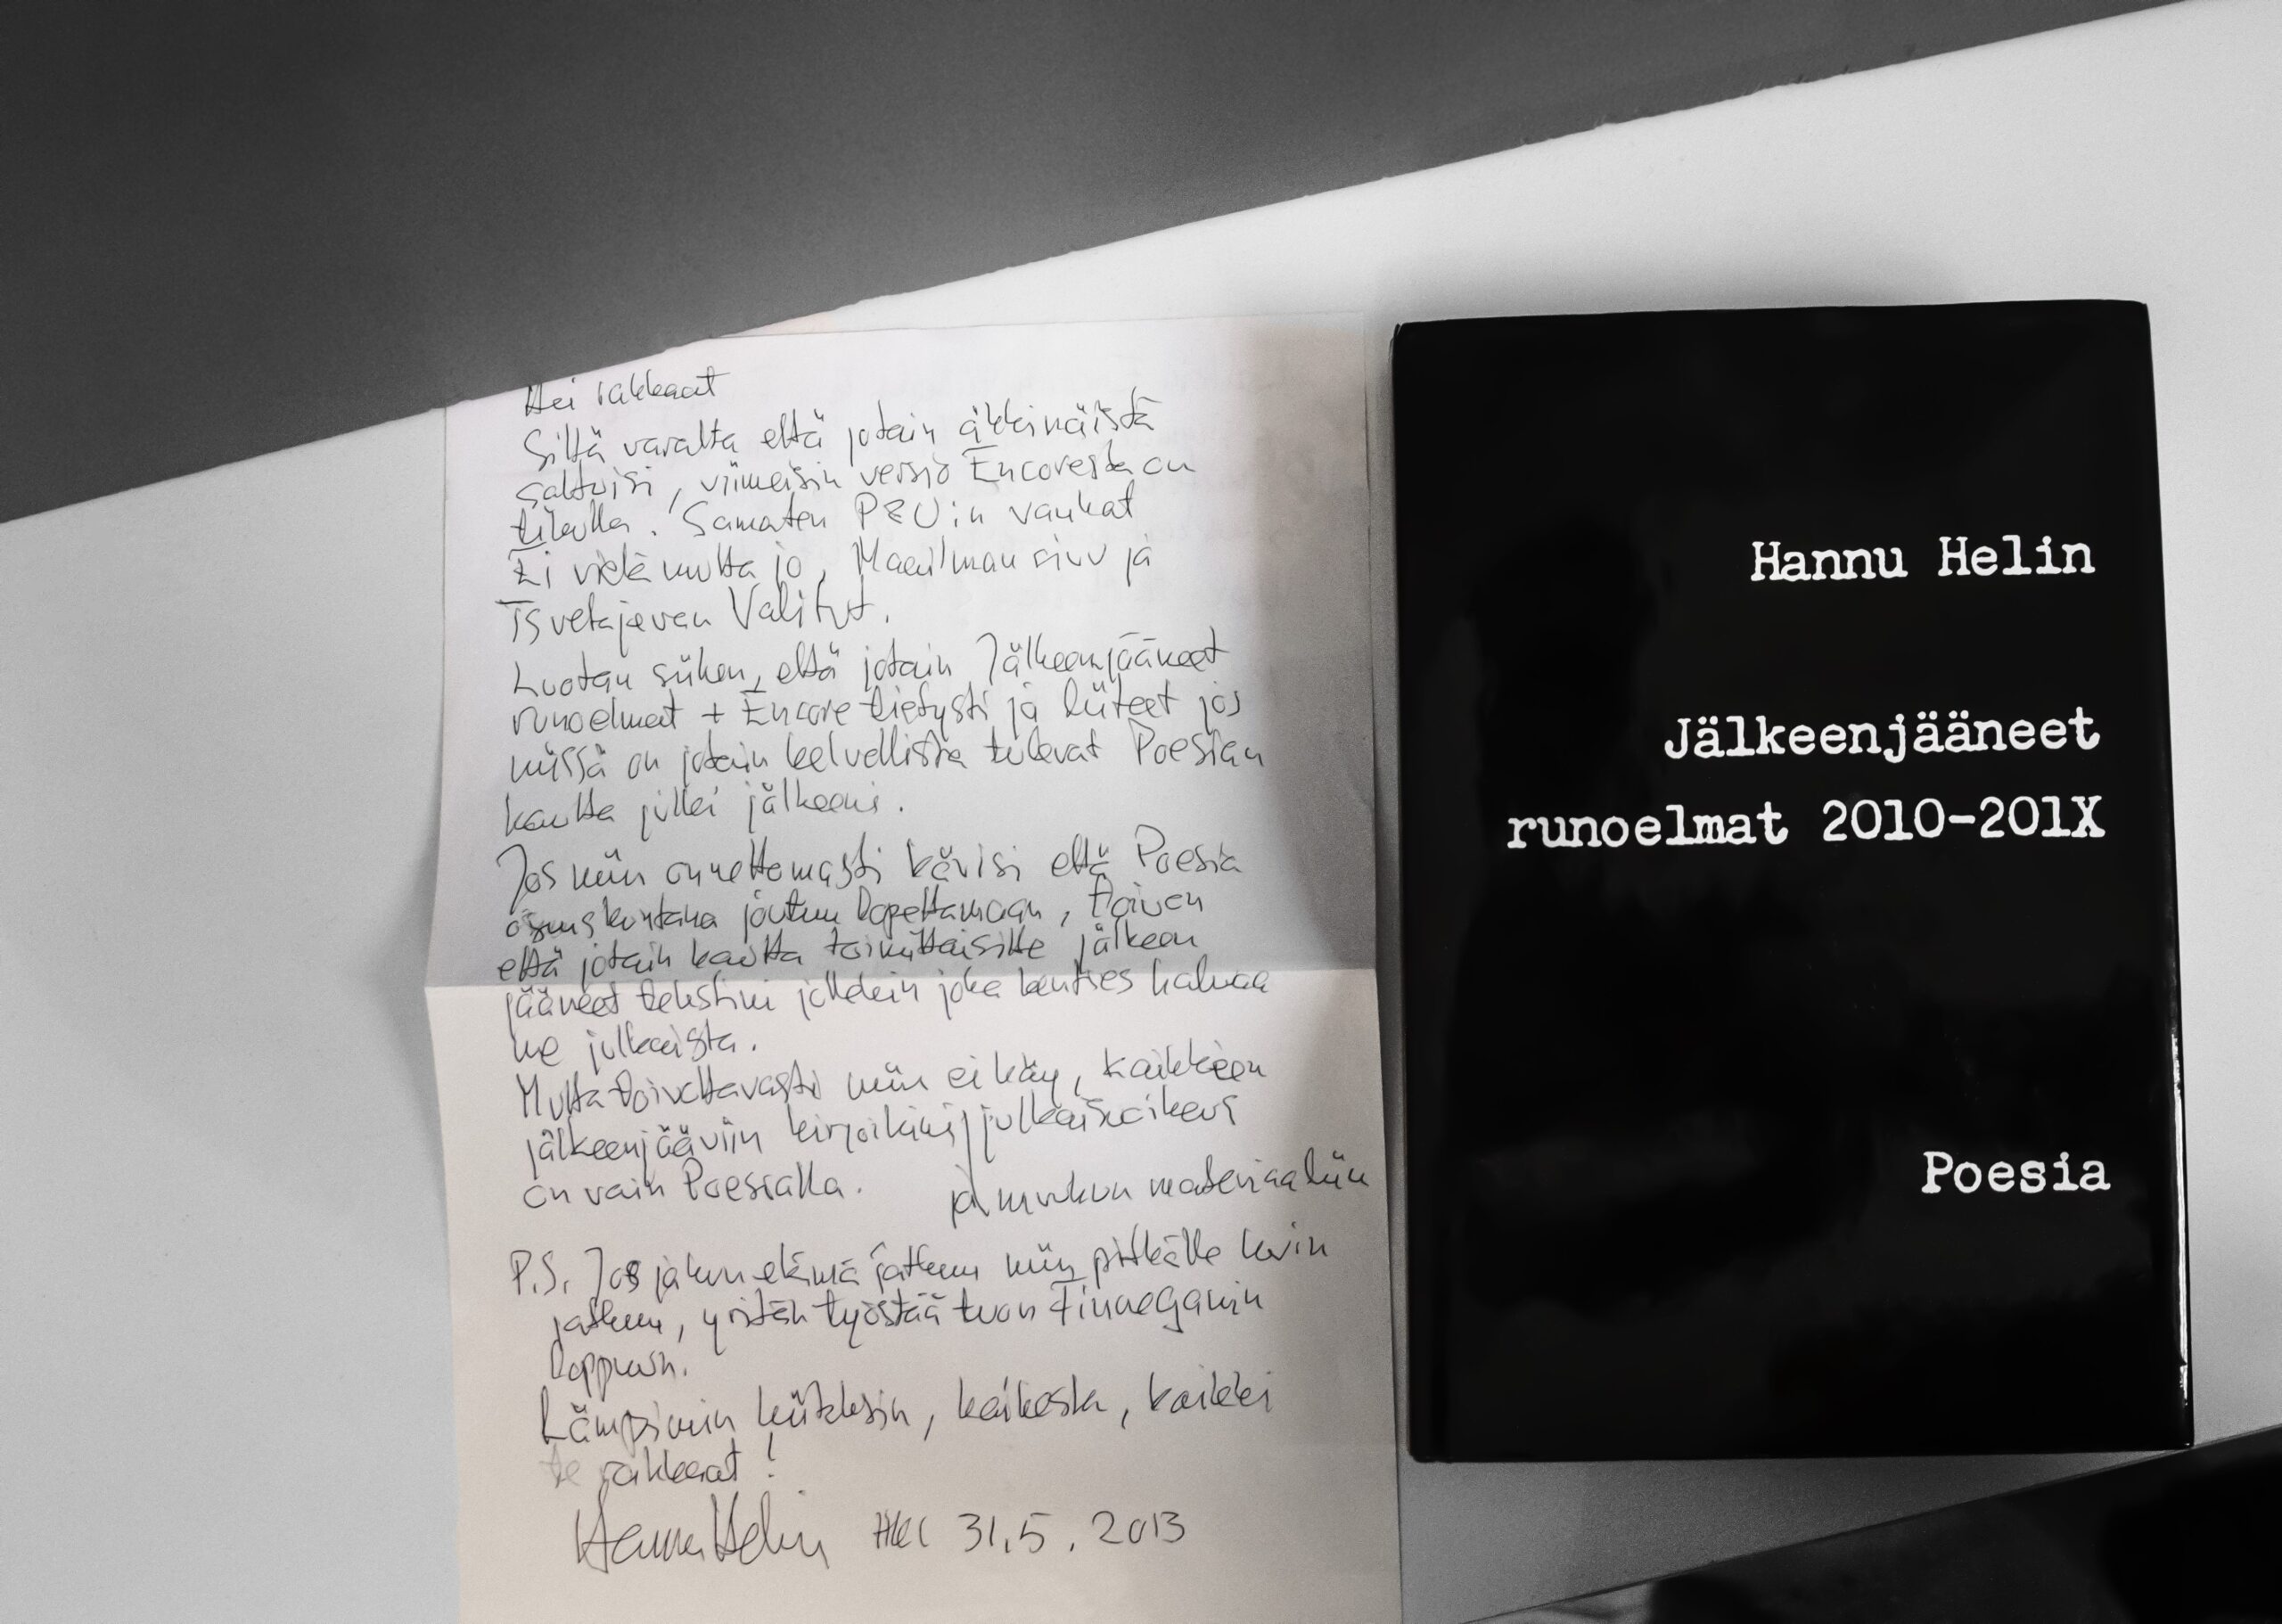 Hei rakkaat
Siltä varalta että jotain äkkinäistä
sattuisi, viimeisin versio Encoresta on
tikulla. Samaten PEU:n vanhat
Ei vielä mutta jo, Maailman sivu ja
Tsvetajevan Valitut.
Luotan siihen, että jotain Jälkeenjääneet
runoelmat + Encore tietysti ja liitteet jos
niissä on jotain kelvollista tulevat Poesian
kautta julki jälkeeni.
Jos niin onnettomasti kävisi että Poesia
osuuskuntana joutuu lopettamaan, toivon
että jotain kautta toimittaisitte jälkeen
jääneet tekstini jollekin joka kenties haluaa
ne julkaista.
Mutta toivottavasti niin ei käy, kaikkeen
jälkeenjääviin kirjoihini julkaisuoikeus
on vain Poesialla. ja muuhun materiaaliin
P.S. Jos ja kun elämä jatkuu niin pitkälle kuin
jatkuu, yritän työstää tuon Finneganin
loppuun.
Lämpimin kiitoksin, kaikesta, kaikki
te rakkaat!
Hannu Helin HKI 31.5.2013
Hannu Helin
Jälkeenjääneet
runoelmat 2010-201X
Poesia